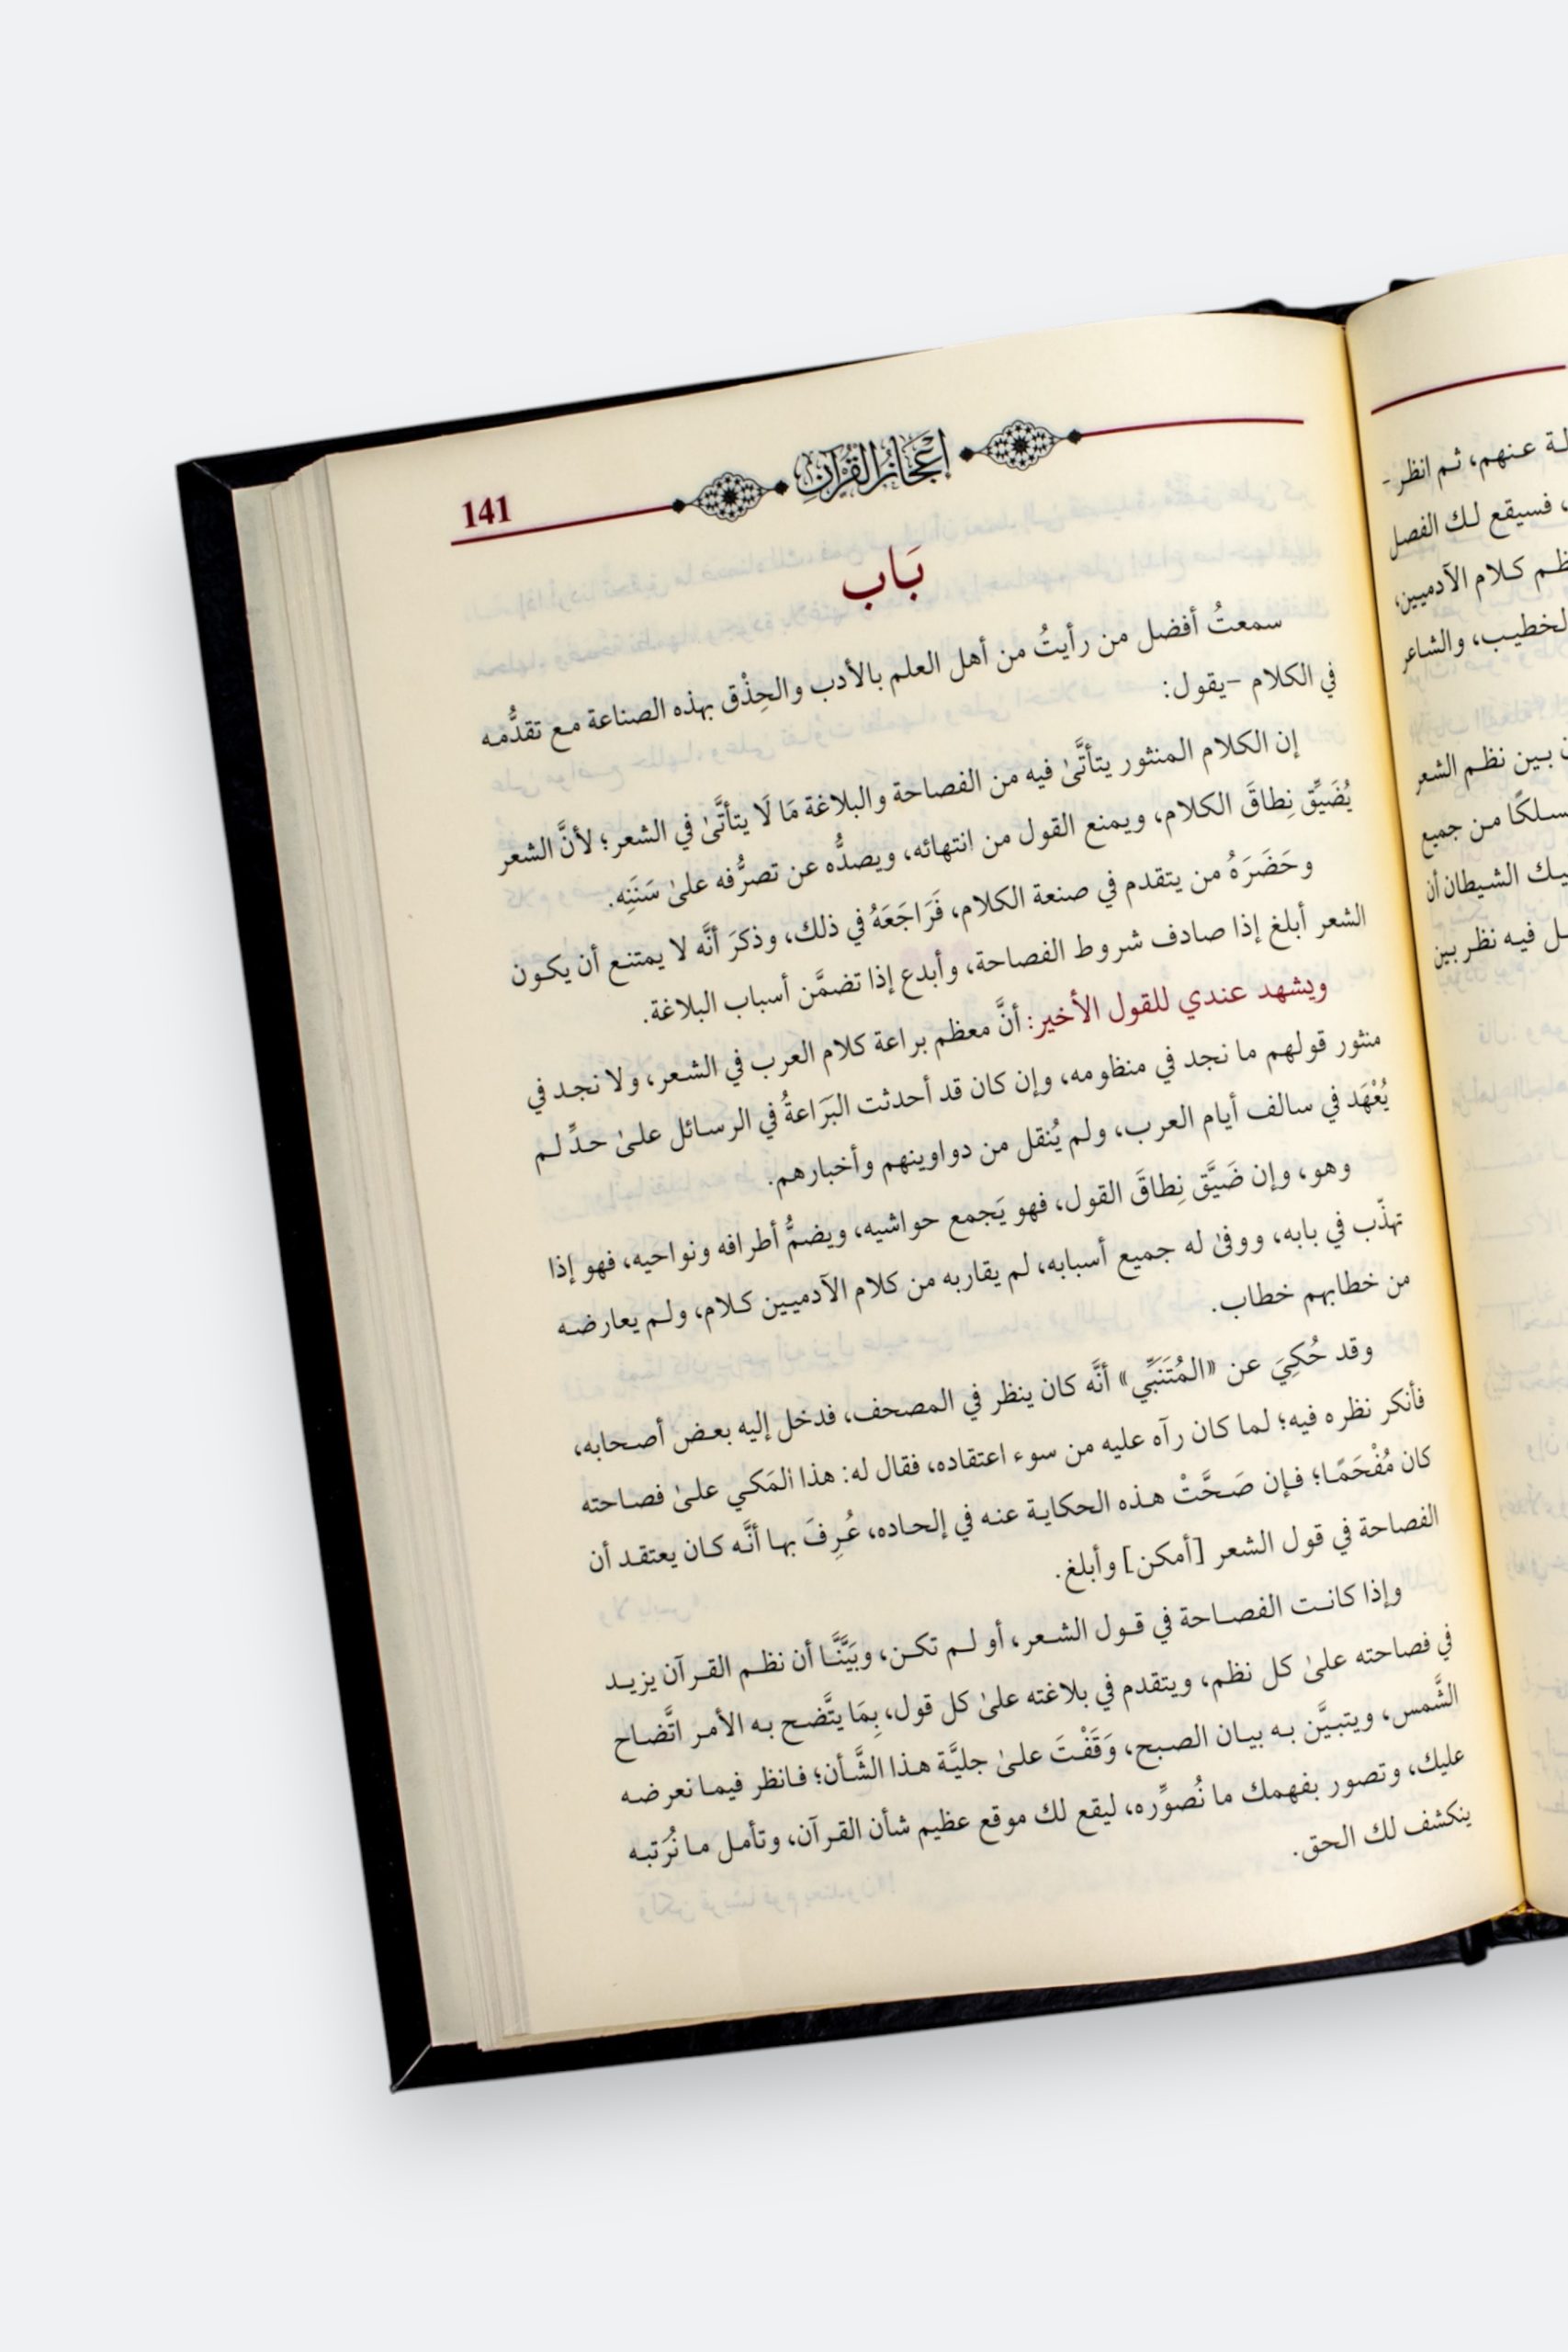 إعجاز القرآن
141
بَاب
سمعتُ أفضل من رأيتُ من أهل العلم بالأدب والحِذْق بهذه الصناعة مع تقدُّمه
في الكلام –يقول:
إن الكلام المنثور يتأتَّىٰ فيه من الفصاحة والبلاغة مَا لَا يتأتَّىٰ في الشعر؛ لأنَّ الشعر
يُضَيِّق نِطاقَ الكلام، ويمنع القول من انتهائه، ويصدُّه عن تصرُّفه علىٰ سَنَنِه.
وحَضَرَهُ من يتقدم في صنعة الكلام، فَرَاجَعَهُ في ذلك، وذكرَ أنَّه لا يمتنع أن يكون
الشعر أبلغ إذا صادف شروط الفصاحة، وأبدع إذا تضمَّن أسباب البلاغة.
ويشهد عندي للقول الأخير: أنَّ معظم براعة كلام العرب في الشعر، ولا نجد في
منثور قولهم ما نجد في منظومه، وإن كان قد أحدثت البَرَاعةُ في الرسائل علىٰ حدٍّ لم
يُعْهَد في سالف أيام العرب، ولم يُنقل من دواوينهم وأخبارهم.
وهو، وإن ضَيَّق نِطاقَ القول، فهو يَجمع حواشيه، ويضمُّ أطرافه ونواحيه، فهو إذا
تهذّب في بابه، ووفىٰ له جميع أسبابه، لم يقاربه من كلام الآدميين كلام، ولم يعارضه
من خطابهم خطاب.
وقد حُكِيَ عن «المُتَنَبِّي» أنَّه كان ينظر في المصحف، فدخل إليه بعض أصحابه،
فأنكر نظره فيه؛ لما كان رآه عليه من سوء اعتقاده، فقال له: هذا المَكي علىٰ فصاحته
كان مُفْحَمًا؛ فإن صَحَّتْ هذه الحكاية عنه في إلحاده، عُرِفَ بها أنَّه كان يعتقد أن
الفصاحة في قول الشعر [أمكن] وأبلغ.
وإذا كانت الفصاحة في قول الشعر، أو لم تكن، وبَيَّنَّا أن نظم القرآن يزيد
في فصاحته علىٰ كل نظم، ويتقدم في بلاغته علىٰ كل قول، بِمَا يتَّضح به الأمر اتَّضاح
الشَّمس، ويتبيَّن به بيان الصبح، وَقَفْتَ علىٰ جليَّة هذا الشَّأن؛ فانظر فيما نعرضه
عليك، وتصور بفهمك ما نُصوِّره، ليقع لك موقع عظيم شأن القرآن، وتأمل ما نُرَتبه
ينكشف لك الحق.
عنهم، ثم انظر-
فسيقع لك الفصل
كلام الآدميين،
والشاعر
بين نظم الشعر
من جميع
الشيطان أن
فيه نظر بين